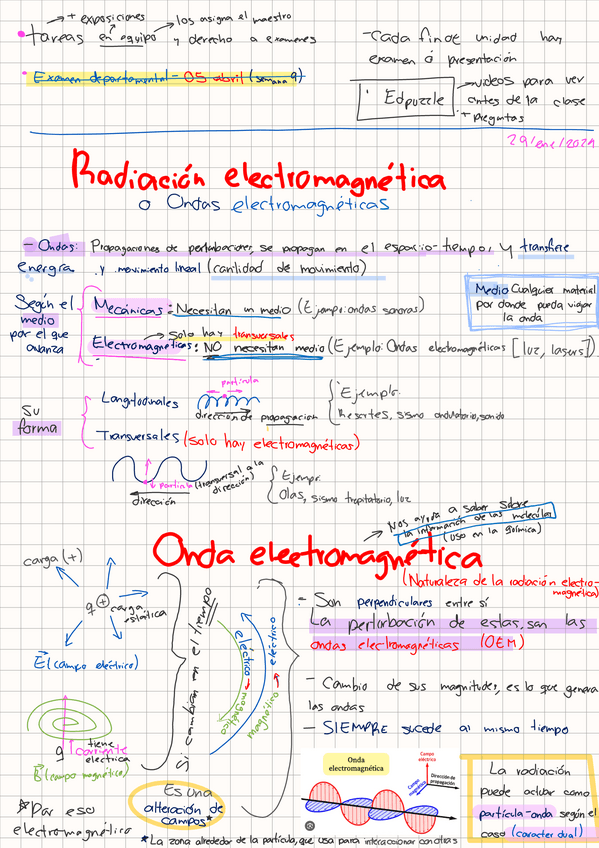 + exposiciones
los asigna el maestro
• tareas en equipo y derecho a examenes
• Examen departamental - 05 abril (semana 9)
- Cada fin de unidad hay
examen ó presentación
• Edpuzzle
videos para ver
antes de la clase
+ preguntas
29/ene/2024
Radiación electromagnética
o Ondas electromagnéticas
- Ondas: Propagaciones de perturbaciones, se propagan en el espacio-tiempo, y transfiere
energía y movimiento lineal (cantidad de movimiento)
Medio Cualquier material
por donde pueda viajar
la onda
Según el
medio
por el que
avanza
Mecánicas: Necesitan un medio (Ejemp: ondas sonoras)
solo hay transversales
Electromagnéticas: NO necesitan medio (Ejemplo: Ondas electromagnéticas [luz, lasers])
su
forma
Longitudinales
particula
dirección de propagación
Ejemplo.
Resortes, sismo ondulatorio, sonido
Transversales (solo hay electromagnéticas)
particula (transversal a la
dirección)
dirección
Ejemp:
Olas, sismo trepitatorio, luz
Nos ayuda a saber sobre
la información de las moleculas
(uso en la química)
Onda electromagnética
(Naturaleza de la radiación electro-
magnética)
carga (+)
q +
carga
estática
E (campo eléctrico)
q
tiene
corriente
electrica
B (campo magnético)
* Por eso
electromagnético
Si cambian en el tiempo
eléctrico → magnético
magnético → eléctrico
Es una
alteración de
campos*
- Son perpendiculares entre sí
La perturbación de estas, son las
ondas electromagnéticas (OEM)
- Cambio de sus magnitudes, es lo que genera
las ondas
- SIEMPRE sucede al mismo tiempo
Onda
electromagnética
Campo
eléctrico
Campo
magnético
Dirección de
propagación
La radiación
puede actuar como
partícula-onda según el
caso (caracter dual)
* La zona alrededor de la partícula, que usa para interaccionar con otras